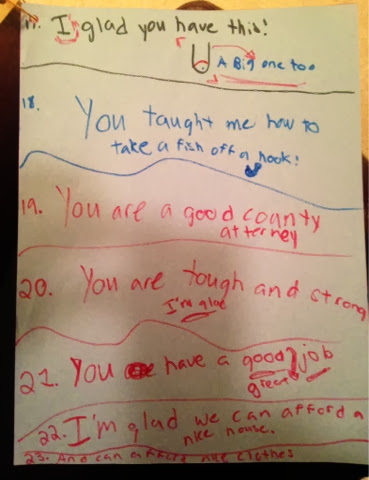 17. I'm glad you have this!
A Big one too
18. You taught me how to
take a fish off a hook!
19. You are a good county
atterney
20. You are tough and strong
I'm glad
21. You have a good job
great
22. I'm glad we can afford a
nice house.
23. And can afford nice clothes